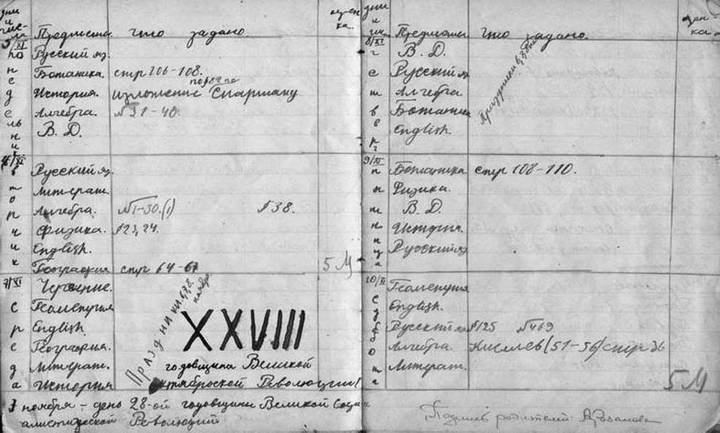 дни и числ. Предметы что задано оценка
5/XI понедельник Русский яз.
Ботаника стр 106-108.
История. изложение по рочно Спартаку
Алгебра. №31-40.
В. Д.
6/XI вторник Русский яз.
Литерат.
Алгебра. №1-30.(1) §38.
Физика. §23,24.
English.
География стр 64-67 5 М
7/XI среда Черчение.
Геометрия
English.
География.
Литерат.
История
Праздник
XXVIII
годовщина Великой
Октябрьской Революции!
7 ноября - день 28-ой годовщины Великой Социалистической Революции
дни и Предметы что задано оценка
8/XI четверг В. Д.
Русский яз
Алгебра.
Ботаника
English.
9/XI пятница Ботаника стр 108-110.
Физика.
В. Д.
История.
Русский яз
10/XI суббота Геометрия
English.
Русский яз §125 №469
Алгебра. Киселев (51-56) стр 36
Литерат.
5 М
Подпись родителей